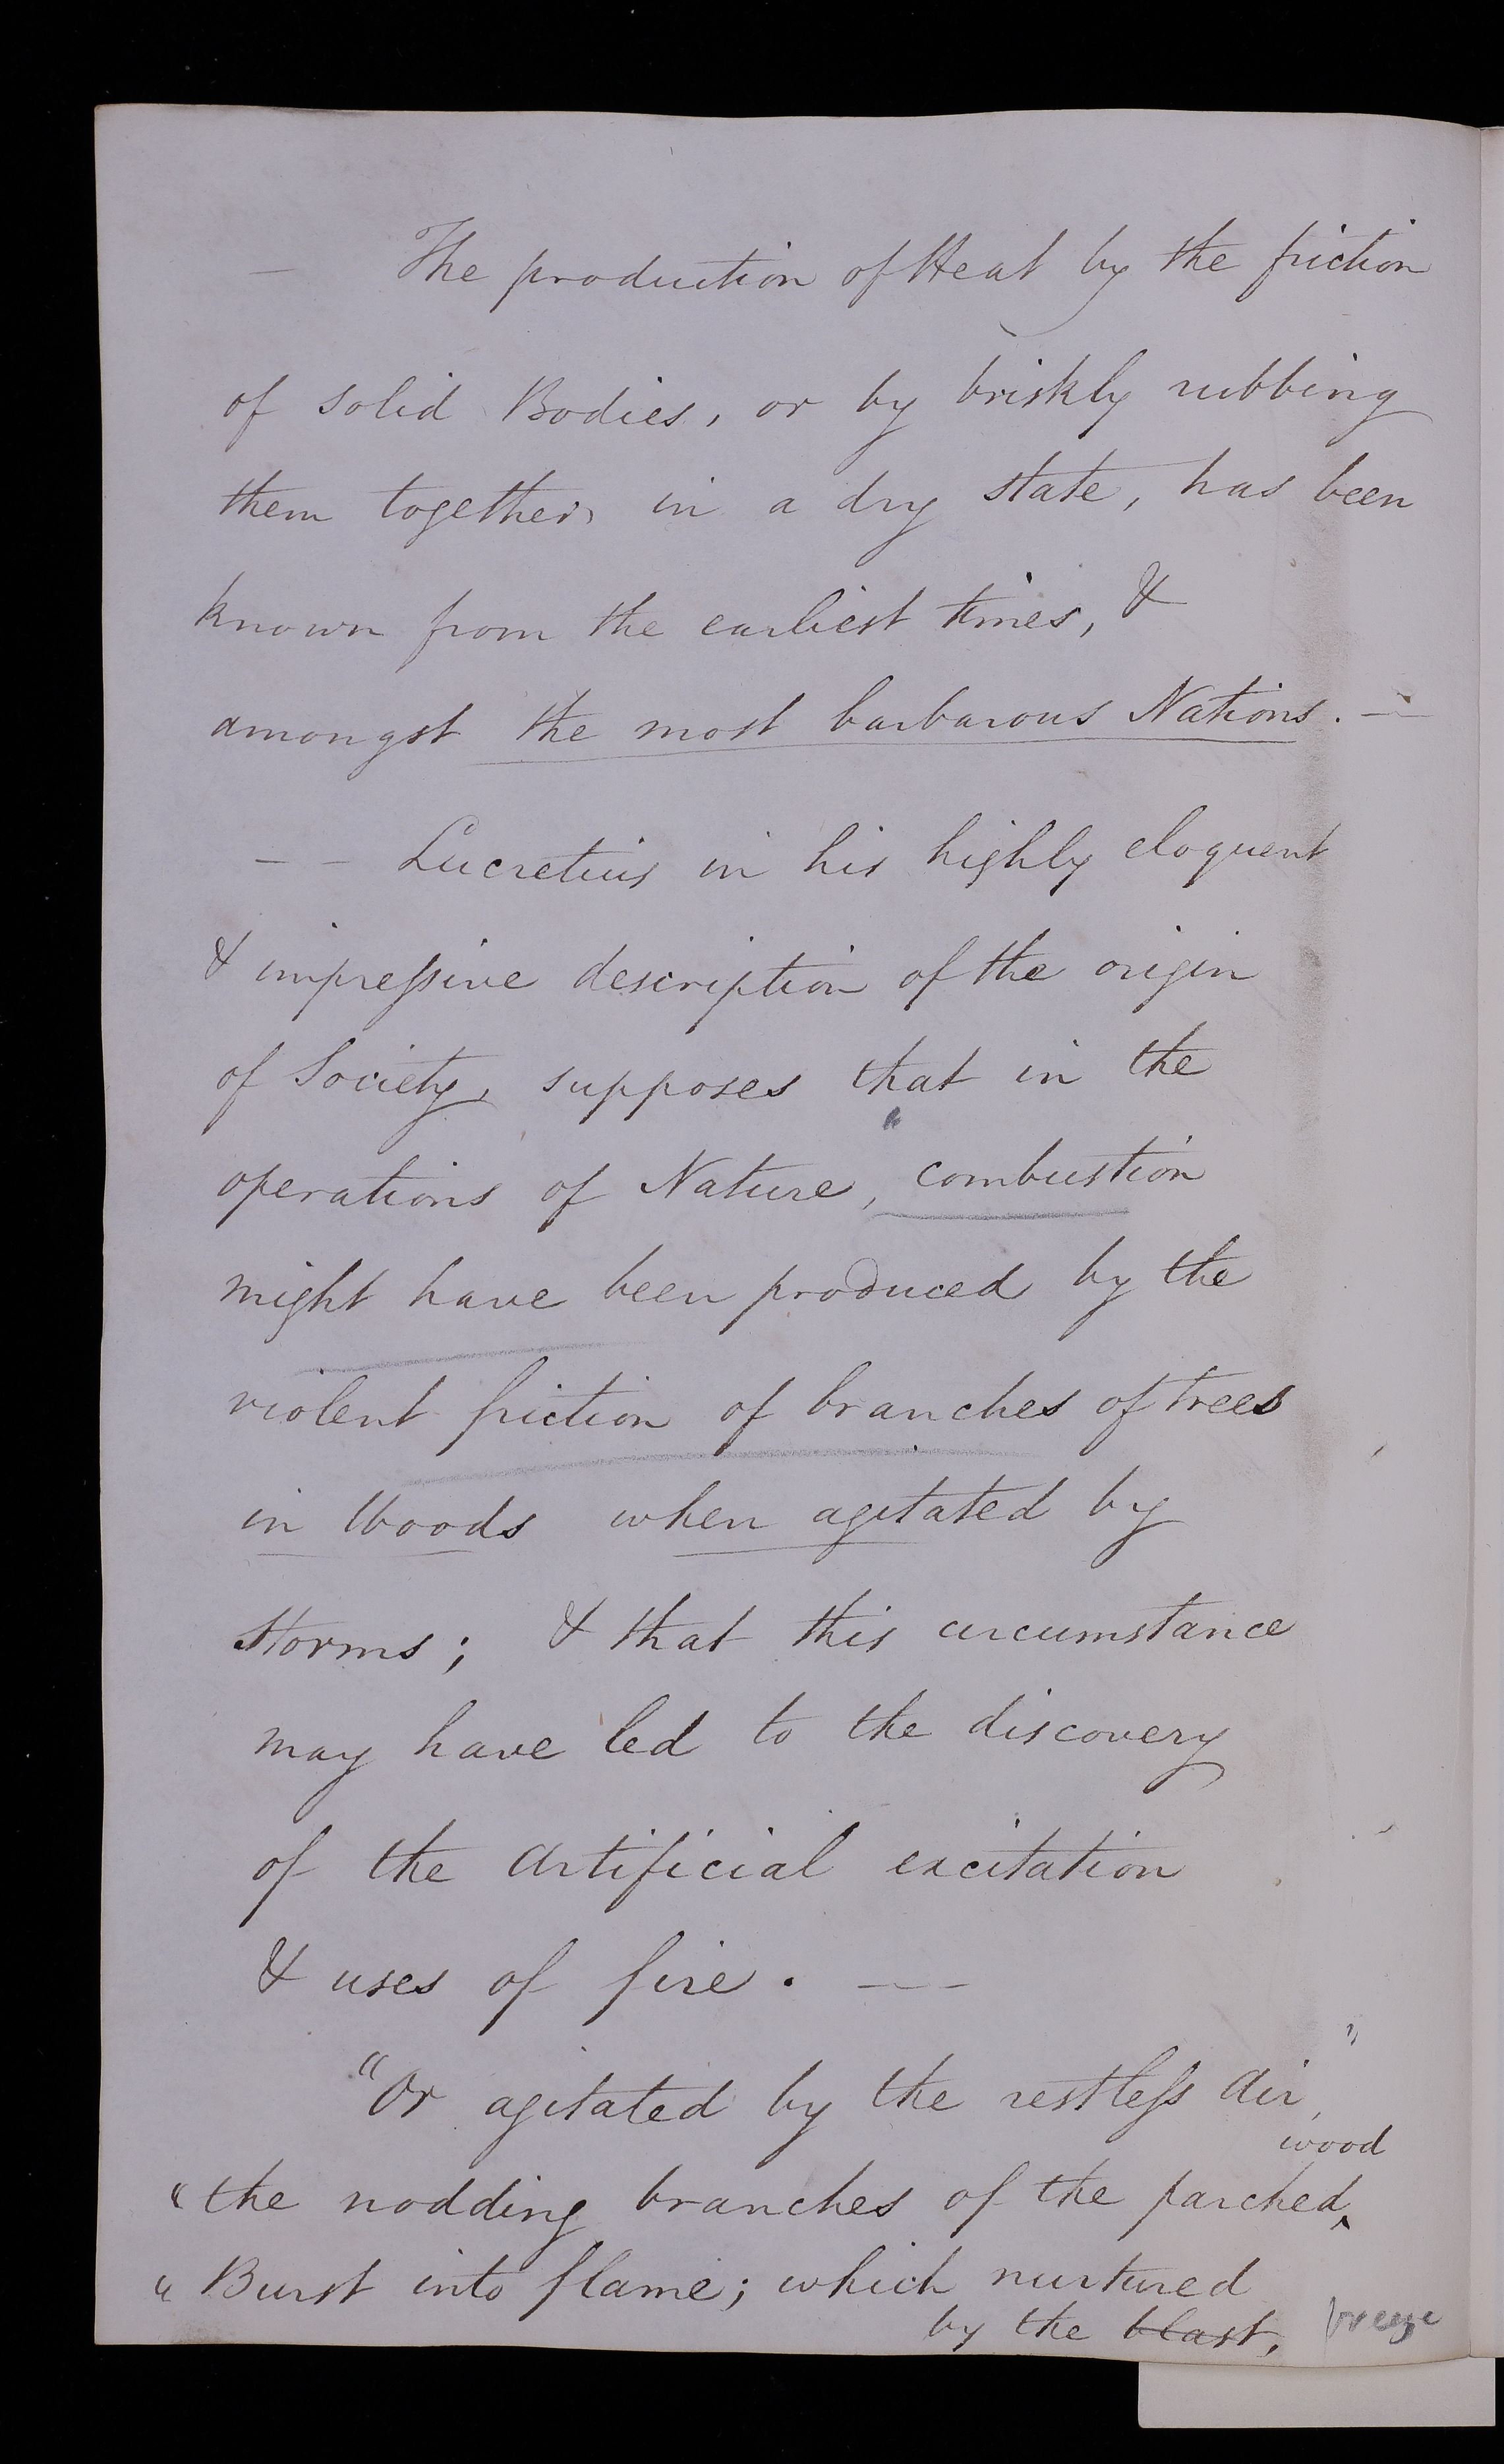 — The production of Heat by the friction
of solid Bodies, or by briskly rubbing
them together, in a dry state, has been
known from the earliest times, &
amongst the most barbarous Nations. —
— — Lucretius in his highly eloquent
& impressive description of the origin
of Society, supposes that in the
operations of Nature, combustion
might have been produced by the
violent friction of branches of trees
in Woods when agitated by
Storms; & that this circumstance
may have led to the discovery
of the artificial excitation
& uses of fire. — —
"Or agitated by the restless air,"
wood
"the nodding branches of the parched
"Burst into flame; which nurtured
by the blast, breeze